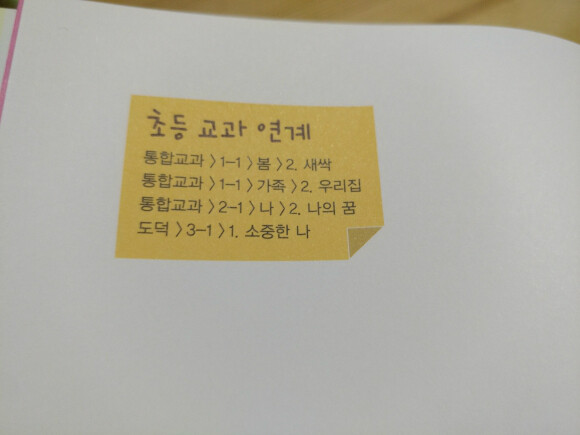 초등 교과 연계
통합교과 > 1-1 > 봄 > 2. 새싹
통합교과 > 1-1 > 가족 > 2. 우리집
통합교과 > 2-1 > 나 > 2. 나의 꿈
도덕 > 3-1 > 1. 소중한 나